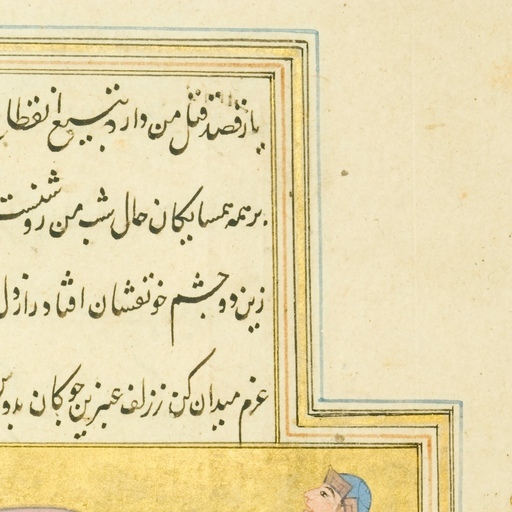 یار قصد قتل من دارد بتیغ انقطا
بر همه همسایگان حال شب من روشنست
زین دو چشم خونفشان افتاد راز دل
عزم میدان کن ز زلف عنبرین چوکان بدوش